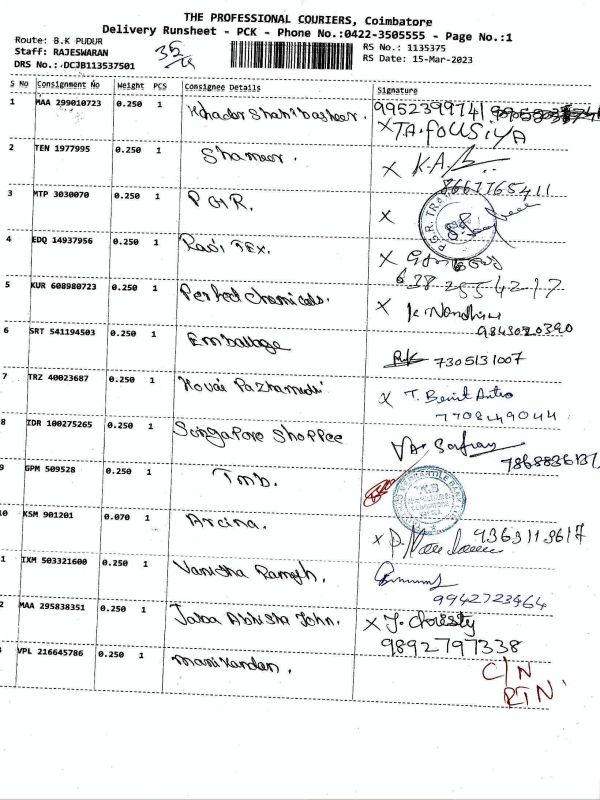 THE PROFESSIONAL COURIERS, Coimbatore
Delivery Runsheet - PCK - Phone No.:0422-3505555 - Page No.:1
Route: B.K PUDUR
Staff: RAJESWARAN
DRS No.: DCJB113537501
35
RS No.: 1135375
RS Date: 15-Mar-2023
S NO Consignment No Weight PCS Consignee Details Signature
1 MAA 299010723 0.250 1 9952399741
X TA. FOUSIYA
2 TEN 1977995 0.250 1 Shameer. X K.A.
8667765411
3 MTP 3030070 0.250 1 P G R. X P.G.R. TRA
4 EDQ 14937956 0.250 1 Ravi Tex. X
638 2554217
5 KUR 608980723 0.250 1 Perfect Chemicals. X K. Nandhini
9843020390
6 SRT 541194503 0.250 1 Emballage 7305131007
7 TRZ 40023687 0.250 1 Kovai Pazhamudir X T. Benit Anto
7708249044
8 IDR 100275265 0.250 1 Singapore Shoppee
7868836137
9 GPM 509528 0.250 1 Tmb.
10 KSM 901201 0.070 1 Arcina. X P. 9363113617
1 IXM 503321600 0.250 1 Vanitha Ramesh.
9942723464
2 MAA 295838351 0.250 1 Jaba Abhisha John. X J. Chrissty
9892797338
VPL 216645786 0.250 1 Manikandan. C/N
RTN